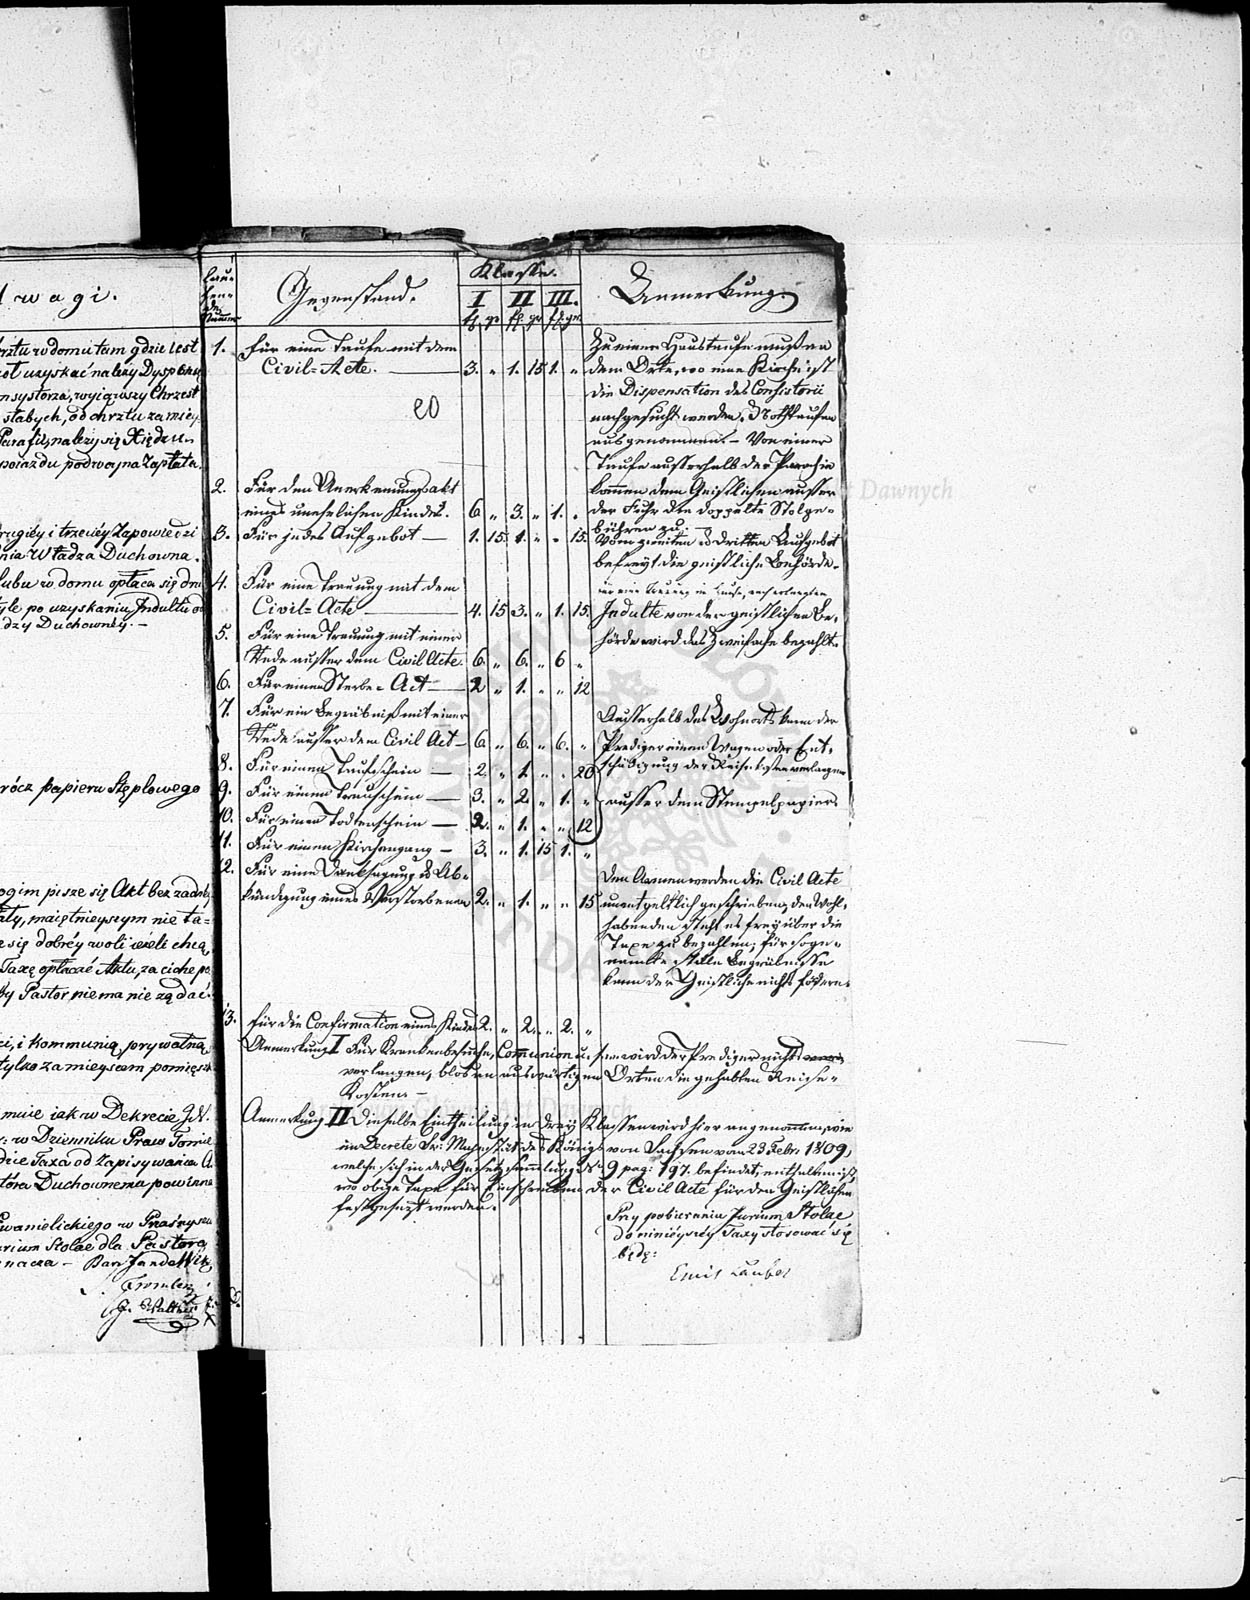 Uwagi.
hrztu w domu tam gdzie iest
uzyskać należy Dyspensę
nsystorza, wyiąwszy Chrzest
słabych, od chrztu za miey
Parafii, należy się Xiędzu
poiazdu podwoyna Zapłata.
drugiey i trzeciey Zapowiedzi
nia Władza Duchowna.
lubu w domu opłaca się
tyle po uzyskaniu Indultu od
dzy Duchowney.
prócz papieru Stęplowego
ogim pisze się Akt bez zadney
łaty, maiętnieyszym nie ta=
się dobréy woli ieżeli chcą
Taxę opłacać Aktu, za ciche po
by Pastor nie ma nic żądać.
ci, i Kommunią prywatną
tylko za mieyscem pomięsz
muie iak w Dekrecie
w Dzienniku Praw Tomie
dzie Taxa od Zapisywania
Duchownemu powinna
Ewanielickiego w Przasnyszu
rium Stolae dla Pastora
nacza
Laufende Nummer
Gegenstand.
Klasse.
I II III.
fl. gr. fl. gr. fl. gr.
Anmerkung.
1. Für eine Taufe mit dem
Civil=Acte. 3. „ 1. 15 1. „
20
Zu einer Haustaufe muß an
dem Orte, wo eine Kirche ist
die Dispensation des Consistorii
nachgesucht werden, Nothtaufen
ausgenommen. – Von einer
Taufe ausserhalb der Parochie
kommen dem Geistlichen ausser
der Fuhr die doppelte Stolge=
bühren zu.
2. Für den Anerkennungsakt
eines unehelichen Kindes. 6 „ 3. „ 1. „
3. Für jedes Aufgebot 1. 15 1. „ „ 15.
Vom zweiten & dritten Aufgebot
befreyt die geistliche Behörde.
4. Für eine Trauung mit dem
Civil=Acte 4. 15 3. „ 1. 15.
Für eine Trauung im Hause, nach erlangtem
Indulte von der geistlichen Be=
hörde wird das Zweifache bezahlt.
5. Für eine Trauung mit einer
Rede ausser dem Civil Acte. 6. „ 6. „ 6 „
6. Für einen Sterbe=Act 2 „ 1. „ „ 12
7. Für ein Begräbniß mit einer
Rede ausser dem Civil Act 6. „ 6. „ 6. „
Ausserhalb des Wohnorts kann der
Prediger einen Wagen oder Ent=
schädigung der Reisekosten verlangen
8. Für einen Taufschein 2. „ 1. „ „ 20
9. Für einen Trauschein 3. „ 2. „ 1. „
ausser dem Stempelpapier.
10. Für einen Todtenschein 2. „ 1. „ „ 12
11. Für einen Kirchengang 3. „ 1. 15 1. „
12. Für eine Danksagung & Ab=
kündigung eines Verstorbenen 2. „ 1. „ „ 15
Den Armen werden die Civil Acte
unentgeltlich geschrieben, den Wohl=
habenden steht es frey über die
Taxe zu bezahlen; für soge=
nannte stille Begräbnisse
kann der Geistliche nichts fodern.
13. Für die Confirmation eines Kindes 2. „ 2. „ 2. „
Anmerkung I Für Krankenbesuche, Communion u. s. w. wird der Prediger nichts
verlangen, blos an auswärtigen Orten die gehabten Reise=
Kosten. –
Anmerkung II Dieselbe Eintheilung in drey Klassen wird hier angenommen, wie
im Decrete Sr: Majestät des Königs von Sachsen vom 23 Febr. 1809,
welche sich in der Gesetzsammlung No 9 pag: 197. befindet, enthalten ist,
wo obige Taxe für Einschreiben der Civil Acte für den Geistlichen
festgesezt worden.
Przy pobieraniu Jurium Stolae
do niniéyszéy Taxy stosować się
będę:
Emil Lauber